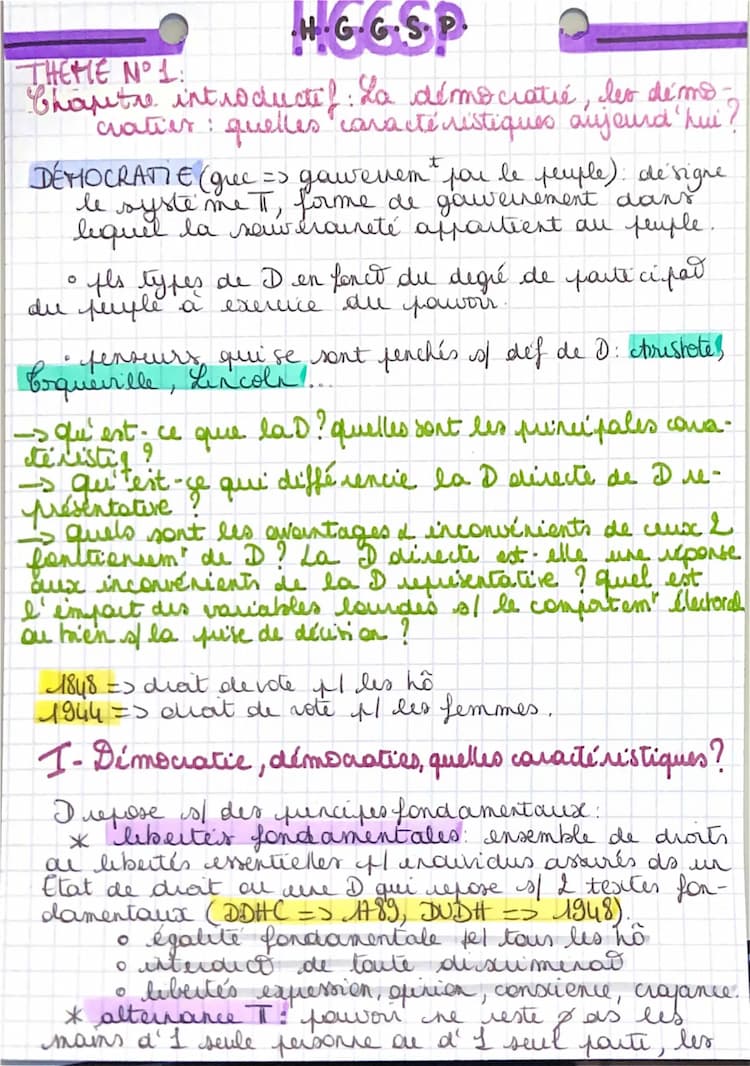 H.G.G.S.P.
THEME N°1:
Chapitre introductif: La démocratie, les démo-
craties : quelles caractéristiques aujourd'hui?
DÉMOCRATIE (grec => gouvernemt par le peuple): désigne
le système π, forme de gouvernement dans
lequel la souveraineté appartient au peuple.
° pls types de D en foncto du degré de participato
du peuple à exercice du pouvoir.
• penseurs qui se sont penchés s/ def de D: Aristote,
Tocqueville, Lincoln...
-> qu'est-ce que la D? quelles sont les principales cara-
téristiq?
-> qu'est-ce qui différencie la D directe de D re-
présentative?
-> quels sont les avantages & inconvénients de ceux 2
fonctionnemt de D? La D directe est-elle une réponse
aux inconvénients de la D représentative? quel est
l'impact des variables lourdes s/ le comportemt électoral
ou bien s/ la prise de décision?
1848 => droit de vote p/ les hô
1944 => droit de vote p/ les femmes.
I- Démocratie, démocraties, quelles caractéristiques?
D repose s/ des principes fondamentaux:
* libertés fondamentales: ensemble de droits
de libertés essentielles p/ individus assurés ds un
État de droit ou une D qui repose s/ 2 textes fon-
damentaux (DDHC => 1789, DUDH => 1948).
° égalité fondamentale p/ tous les hô
° interdicto de toute discriminato
° libertés expression, opinion, conscience, croyance.
* alternance π: pouvoir ne reste ∅ ds les
mains d'1 seule personne ou d'1 seul parti, les